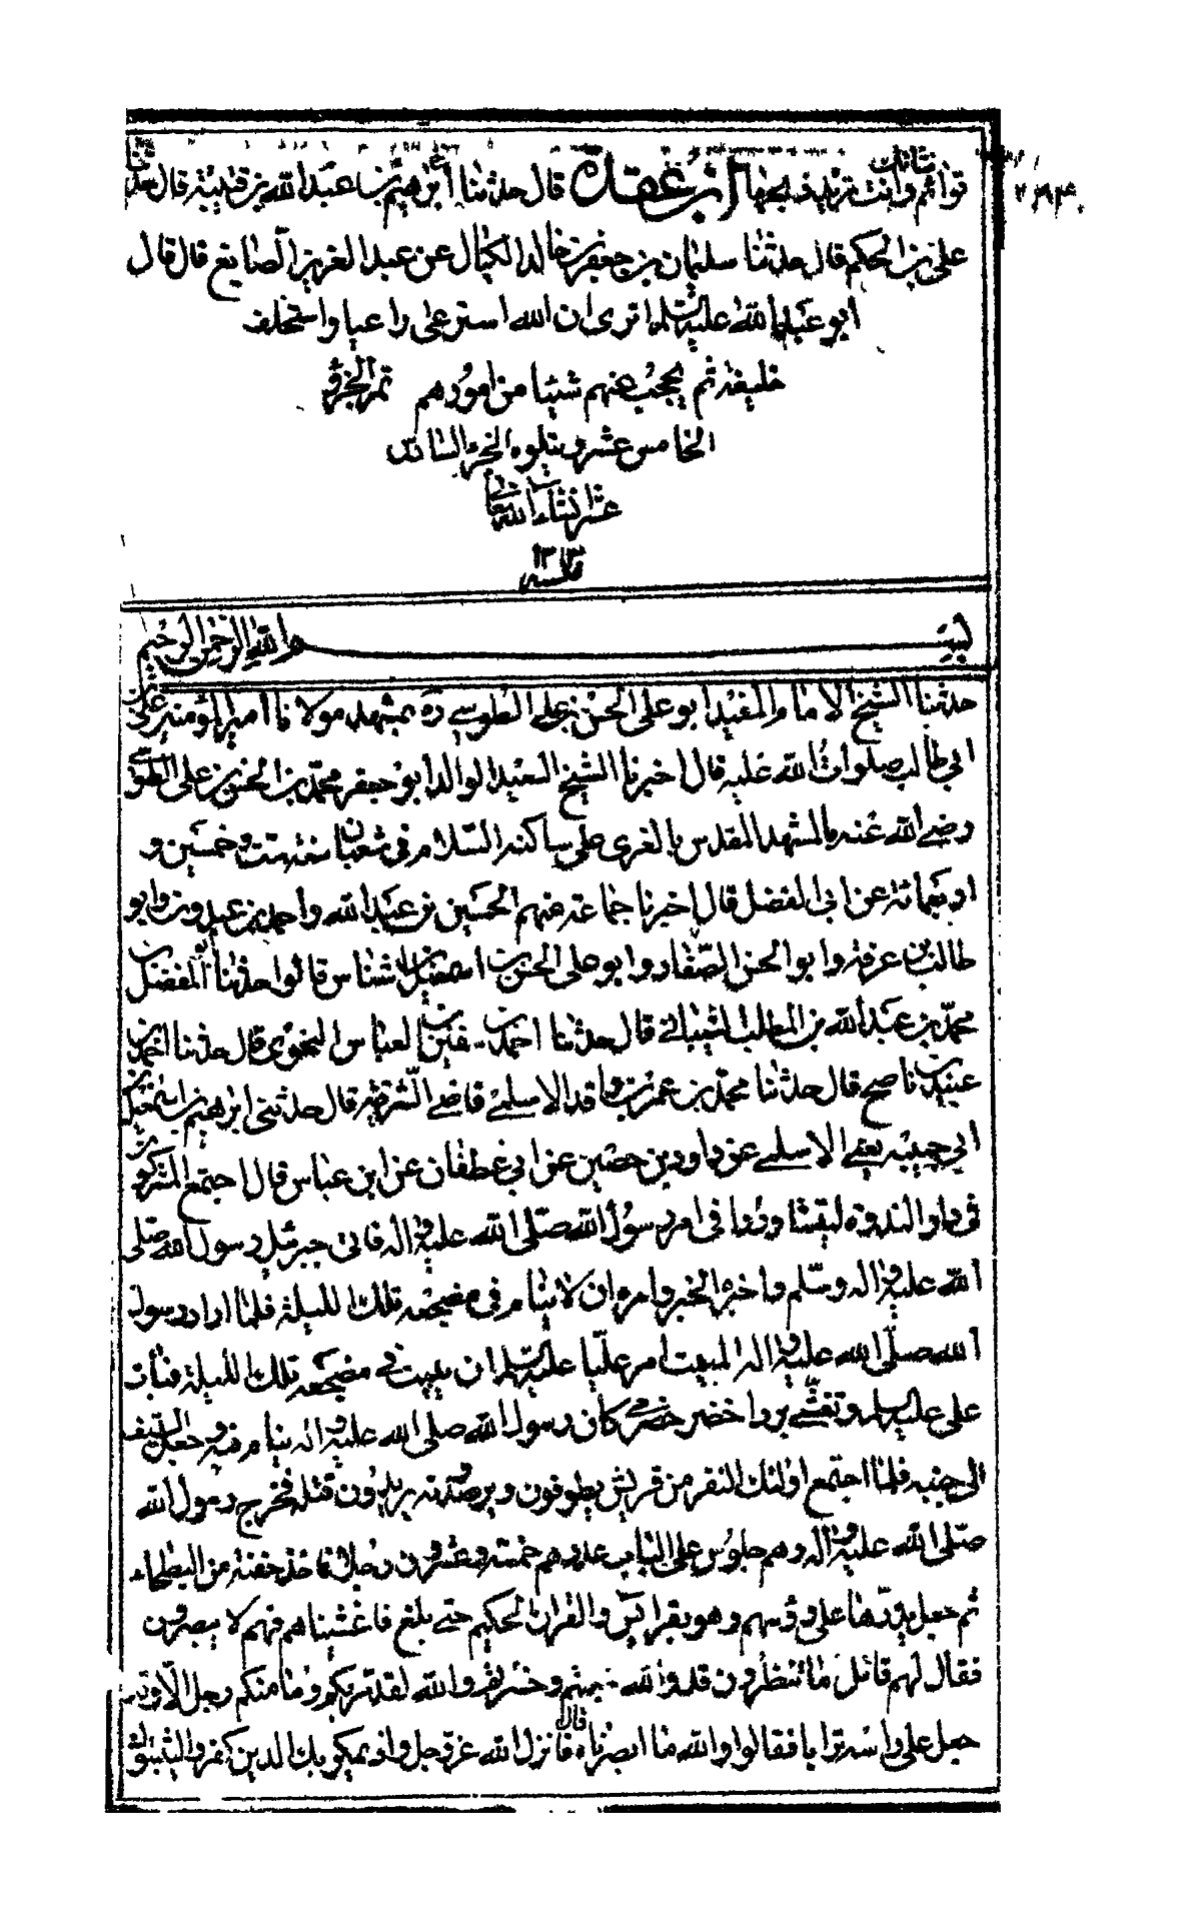 قوائم وانت تريد فبجها ابن عقدة قال حدثنا ابرهيم بن عبد الله بن قتيبة قال حدثنا
علي بن الحكم قال حدثنا سليمان بن جعفر بن خالد الكيال عن عبد العزيز الصايغ قال قال
ابو عبد الله عليه السلم اترى ان الله استرعى راعيا واستخلف
خليفة ثم يحجب عنهم شيئا من امورهم تم الجزؤ
الخامس عشر ويتلوه الجزء السادس
عشر انشاء الله تعالى
١٣١٣
بسم الله الرحمن الرحيم
حدثنا الشيخ الامام المفيد ابو علي الحسن بن علي الطوسي ره بمشهد مولانا امير المؤمنين علي بن
ابي طالب صلوات الله عليه قال اخبرنا الشيخ السعيد الوالد ابو جعفر محمد بن الحسن بن علي الطوسي
رضي الله عنه بالمشهد المقدس بالغري على ساكنه السلام في شعبان سنة ست وخمسين و
اربعمائة عن ابي المفضل قال اخبرنا جماعة منهم الحسين بن عبيد الله واحمد بن عبدون وابو
طالب بن عرفة وابو الحسن الصفار وابو علي الحسن بن اسمعيل بن اشناس قالوا حدثنا ابو المفضل
محمد بن عبد الله بن المطلب الشيباني قال حدثنا احمد بن العباس النحوي قال حدثنا احمد بن
عبيد بن ناصح قال حدثنا محمد بن عمر بن واقد الاسلمي قاضي الشرقية قال حدثني ابرهيم بن اسمعيل بن
ابي حبيبة يعني الاسلمي عن داود بن حصين عن ابي غطفان عن ابن عباس قال اجتمع المشركون
في دار الندوة ليتشاوروا في امر رسول الله صلى الله عليه واله فاتى جبرئيل رسول الله صلى
الله عليه واله وسلم واخبره الخبر وامره ان لا ينام في مضجعه تلك الليلة فلما اراد رسول
الله صلى الله عليه واله المبيت امر عليا عليه السلم ان يبيت في مضجعه تلك الليلة فبات
علي عليه السلم وتغشى ببرد اخضر حضرمي كان رسول الله صلى الله عليه واله ينام فيه وجعل السيف
الى جنبه فلما اجتمع اولئك النفر من قريش يطوفون ويرصدونه يريدون قتله فخرج رسول الله
صلى الله عليه واله وهم جلوس على الباب عددهم خمسة وعشرون رجلا فاخذ حفنة من البطحاء
ثم جعل يذرها على رؤسهم وهو يقرا يس والقران الحكيم حتى بلغ فاغشيناهم فهم لا يبصرون
فقال لهم قائل ما تنتظرون قد والله خبتم وخسرتم والله لقد مر بكم وما منكم رجل الا وقد
جعل على راسه ترابا فقالوا والله ما ابصرناه قال فانزل الله عز وجل واذ يمكر بك الذين كفروا ليثبتوك